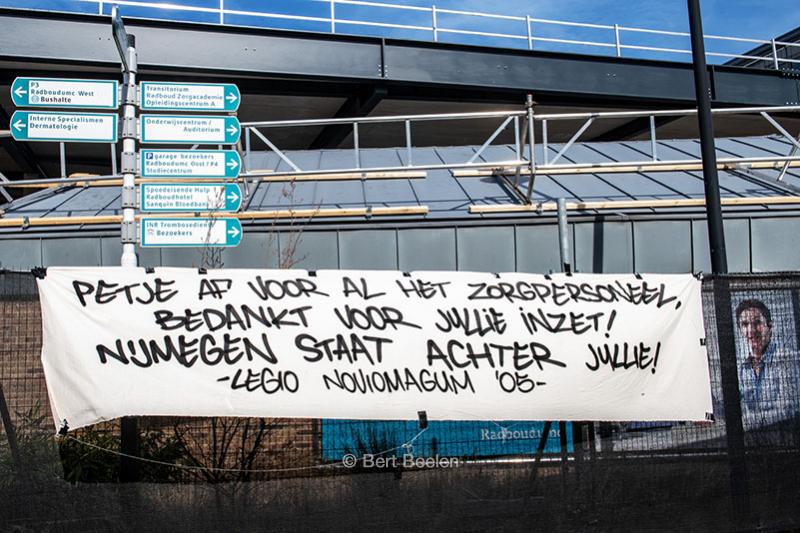 P3
Radboudumc West
Bushalte
Interne Specialismen
Dermatologie
Transitorium
Radboud Zorgacademie
Opleidingscentrum A
Onderwijscentrum /
Auditorium
P garage bezoekers
Radboudumc Oost / P4
Studiecentrum
Spoedeisende Hulp
Radboudhotel
Sanquin Bloedbank
INR Trombosedienst
Bezoekers
PETJE AF VOOR AL HET ZORGPERSONEEL,
BEDANKT VOOR JULLIE INZET!
NIJMEGEN STAAT ACHTER JULLIE!
-LEGIO NOVIOMAGUM '05-
Radboudumc
© Bert Beelen